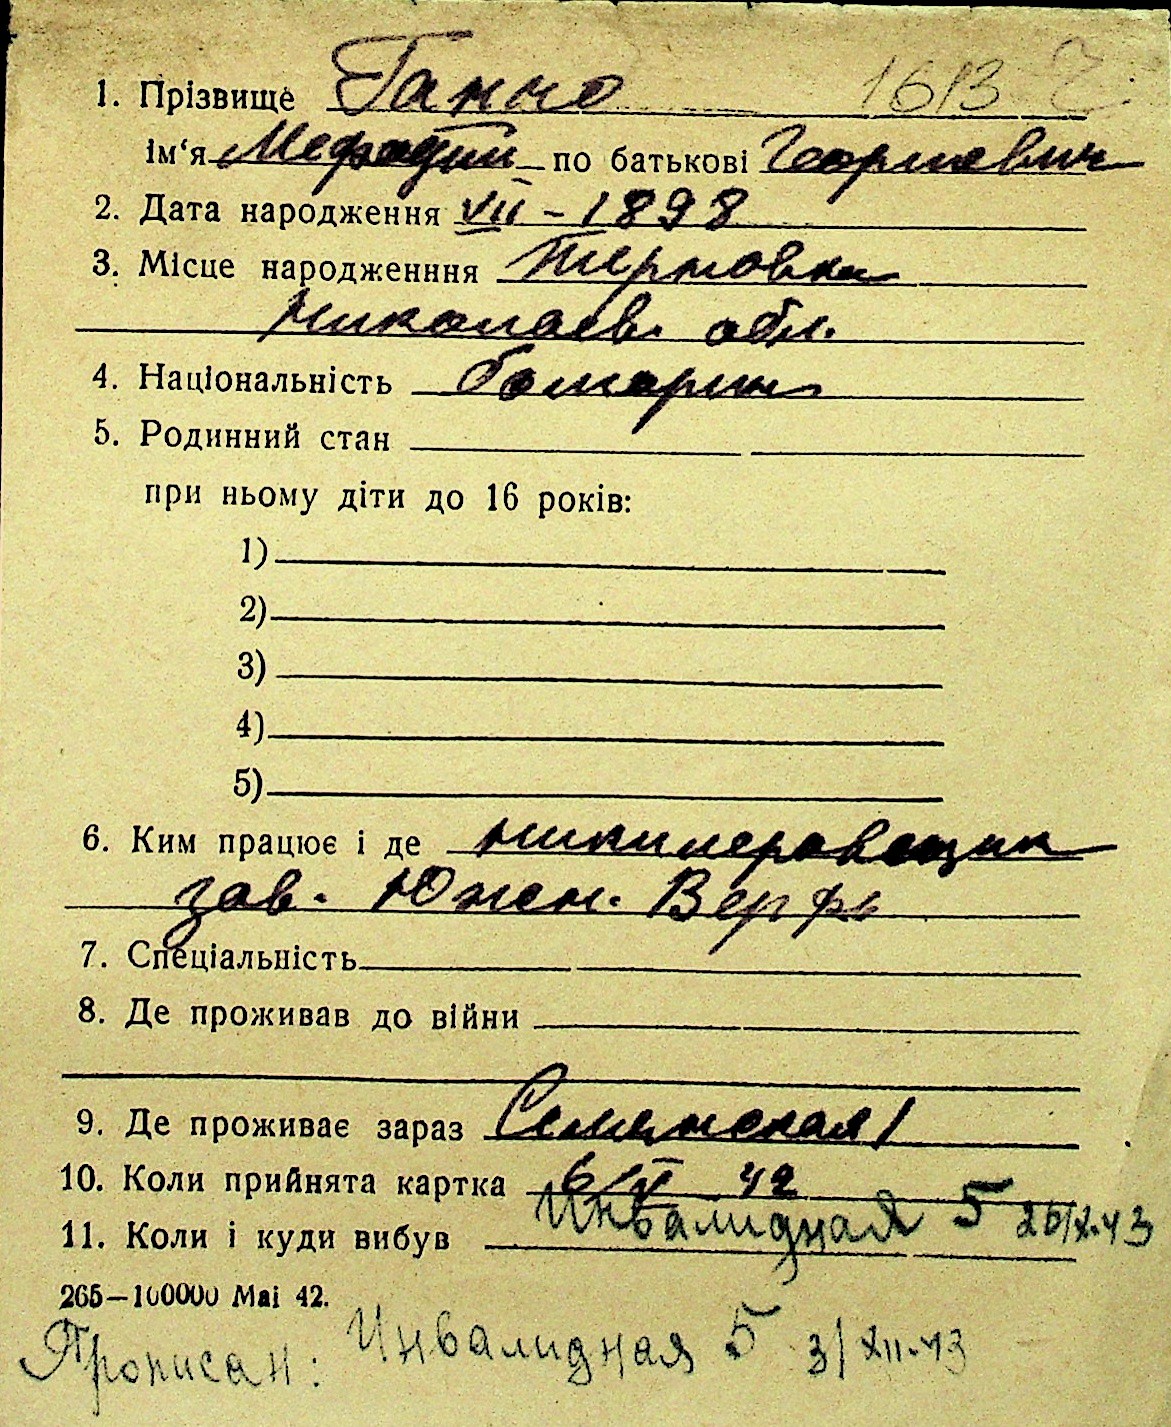 1. Прізвище Ганно 1613
ім‘я Мефодий по батькові Георгиевич
2. Дата народження VII – 1898
3. Місце народженння Терновка
Николаев. обл.
4. Національність болгарин
5. Родинний стан
при ньому діти до 16 років:
1)
2)
3)
4)
5)
6. Ким працює і де
зав. Южн. Верфь
7. Спеціальність
8. Де проживав до війни
9. Де проживає зараз
10. Коли прийнята картка 42
Инвалидная 5 26/X-43
11. Коли і куди вибув
265—100000 Маі 42.
Прописан: Инвалидная 5 3/XII-43